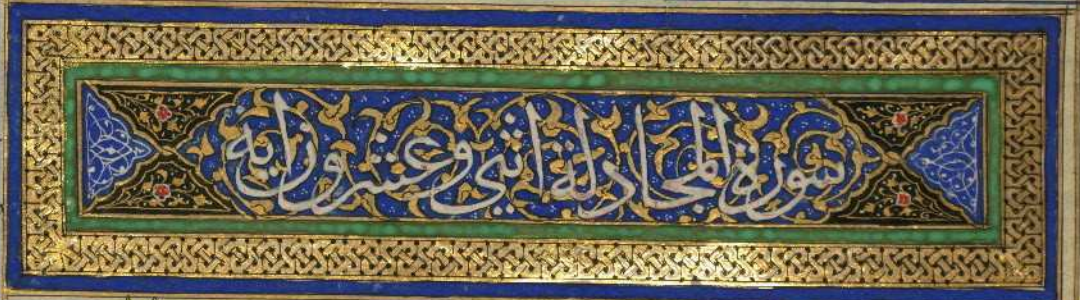 سورة المجادلة اثنى وعشرون اية